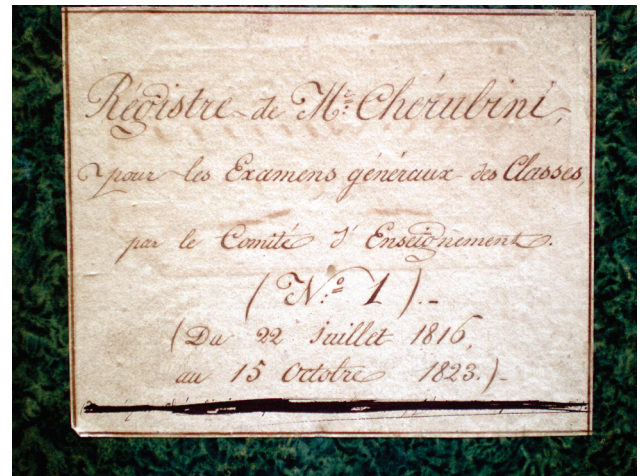 Régistre de Mr. Chérubini,
pour les Examens généraux des Classes,
par le Comité d'Enseignement.
(N.º 1).-
(Du 22 Juillet 1816,
au 15 Octobre 1823.)-